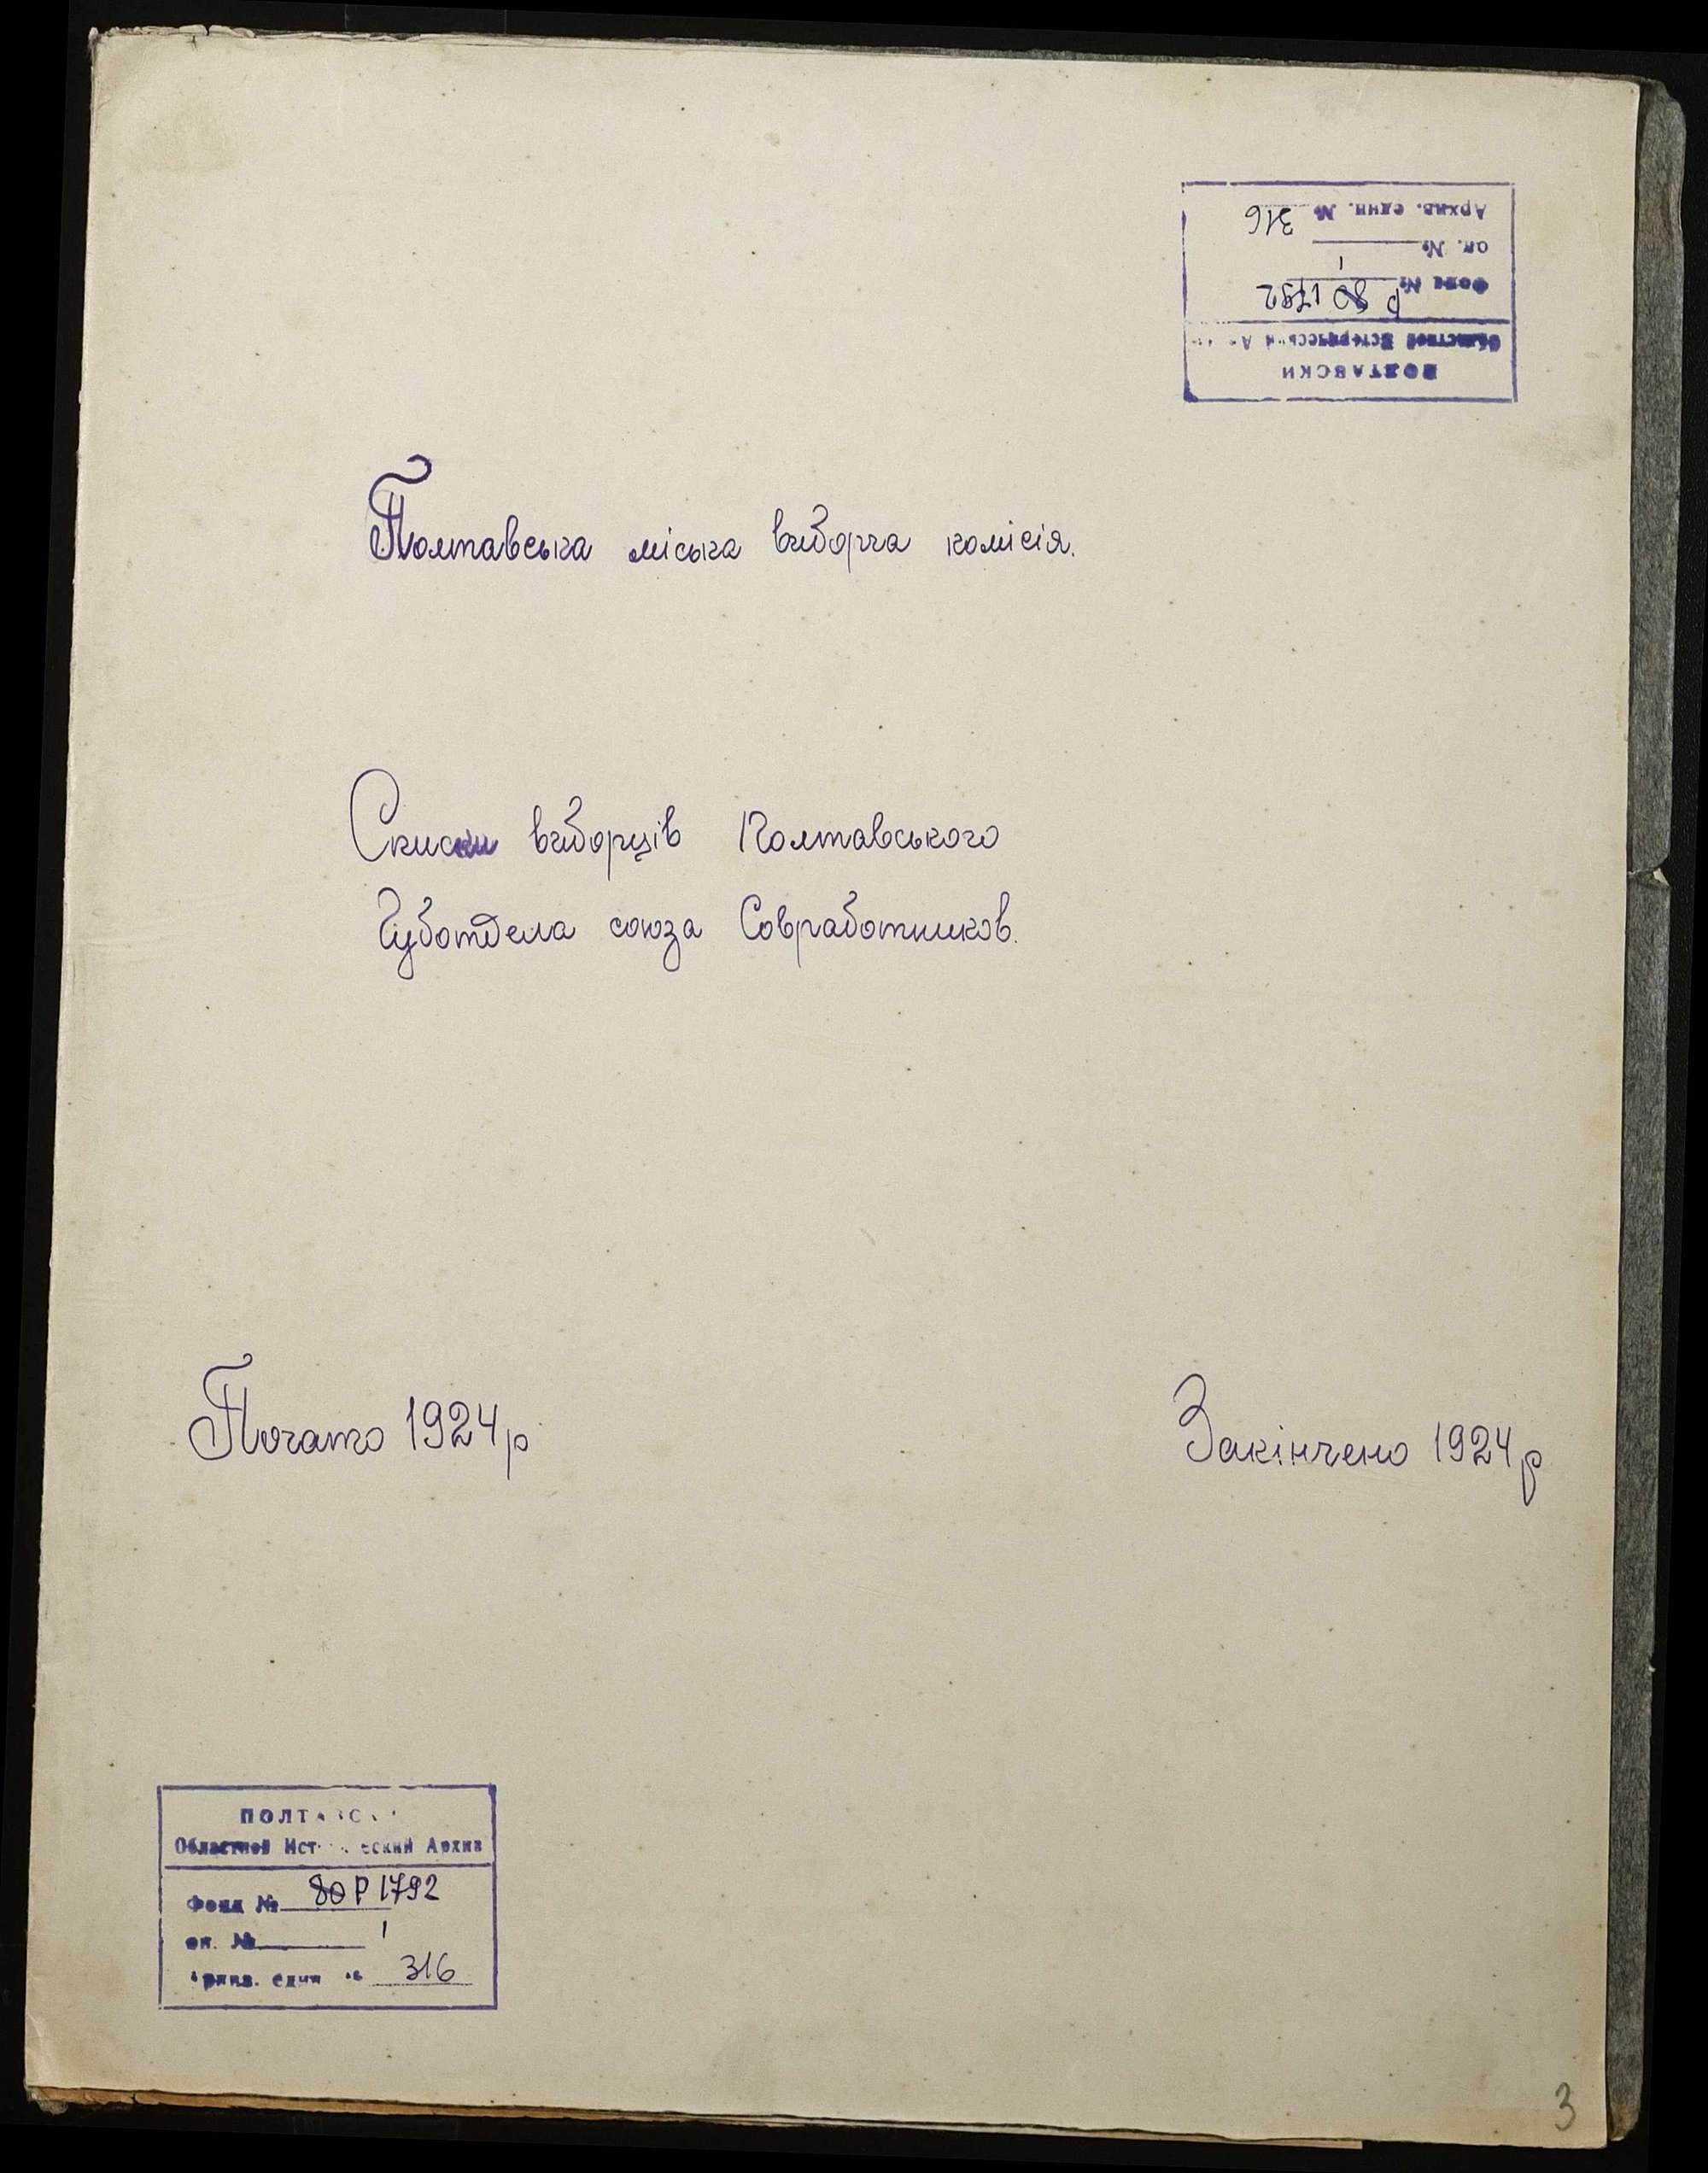 ПОЛТАВСКИ
Областной Исторический
Фонд № Р 80 1792
оп. № 1
Архив. един. № 316
Полтавська міська виборча комісія.
Списки виборців Полтавського
Губотдела союза Совработников.
Почато 1924 р
Закінчено 1924 р
Областной Архив
Фонд № 80 Р 1792
оп. № 1
един 316
3